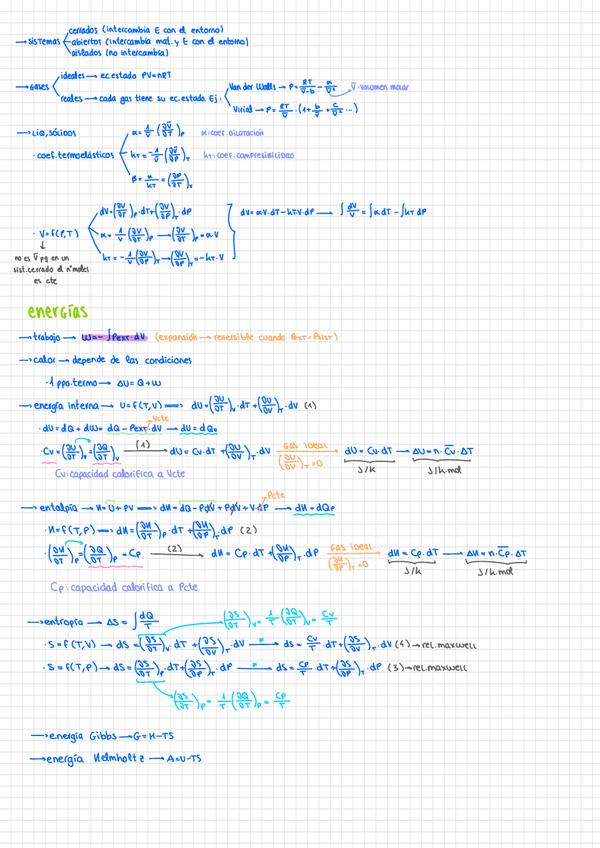 → sistemas
cerrados (intercambia E con el entorno)
abiertos (intercambia mat. y E con el entorno)
aislados (no intercambia)
→ gases
ideales → ec.estado PV=nRT
reales → cada gas tiene su ec.estado Ej:
Van der Walls → P = RT/(V̅-b) - a/V̅² V̅: volumen molar
Virial → P = RT/V̅ · (1 + b/V̅ + c/V̅² ...)
→ LIQ, SÓLIDOS
· coef. termoelásticos
α = 1/V̅ (∂V̅/∂T)p α: coef. dilatación
kT = -1/V̅ (∂V̅/∂P)T kT: coef. compresibilidad
β = α/kT = (∂P/∂T)V
· V = f(P,T)
dV = (∂V/∂T)p · dT + (∂V/∂P)T · dP
α = 1/V (∂V/∂T)p → (∂V/∂T)p = α·V
kT = -1/V (∂V/∂P)T → (∂V/∂P)T = -kT·V
dV = αV·dT - kTV·dP → ∫ dV/V = ∫α dT - ∫kT dP
no es V̅ pq en un
sist. cerrado el nºmoles
es cte
energías
→ trabajo → W = -∫Pext·dV (expansión → reversible cuando Pext = Psist)
→ calor → depende de las condiciones
· 1 ppo.termo → ΔU = Q + W
→ energía interna → U = f(T,V) ⟹ dU = (∂U/∂T)V · dT + (∂U/∂V)T · dV (1)
· dU = dQ + dW = dQ - Pext·dV → dU = dQv
Vcte
· Cv = (∂U/∂T)V = (∂Q/∂T)V (1) → dU = Cv·dT + (∂U/∂V)T · dV
gas ideal (∂U/∂V)T = 0
dU = Cv·dT → ΔU = n·C̅v·ΔT
J/k J/k·mol
Cv: capacidad calorífica a Vcte
→ entalpía → H = U + PV ⟹ dH = dQ - PdV + PdV + V·dP → dH = dQp
Pcte
· H = f(T,P) ⟹ dH = (∂H/∂T)p · dT + (∂H/∂P)T · dP (2)
· (∂H/∂T)p = (∂Q/∂T)p = Cp (2) → dH = Cp·dT + (∂H/∂P)T · dP
gas ideal (∂H/∂P)T = 0
dH = Cp·dT → ΔH = n·C̅p·ΔT
J/k J/k·mol
Cp: capacidad calorífica a Pcte
→ entropía → ΔS = ∫ dQ/T
(∂S/∂T)V = 1/T (∂Q/∂T)V = Cv/T
· S = f(T,V) → dS = (∂S/∂T)V · dT + (∂S/∂V)T · dV → dS = Cv/T · dT + (∂S/∂V)T · dV (4) → rel.maxwell
· S = f(T,P) → dS = (∂S/∂T)p · dT + (∂S/∂P)T · dP → dS = Cp/T · dT + (∂S/∂P)T · dP (3) → rel.maxwell
(∂S/∂T)p = 1/T (∂Q/∂T)p = Cp/T
→ energía Gibbs → G = H-TS
→ energía Helmholtz → A = U-TS